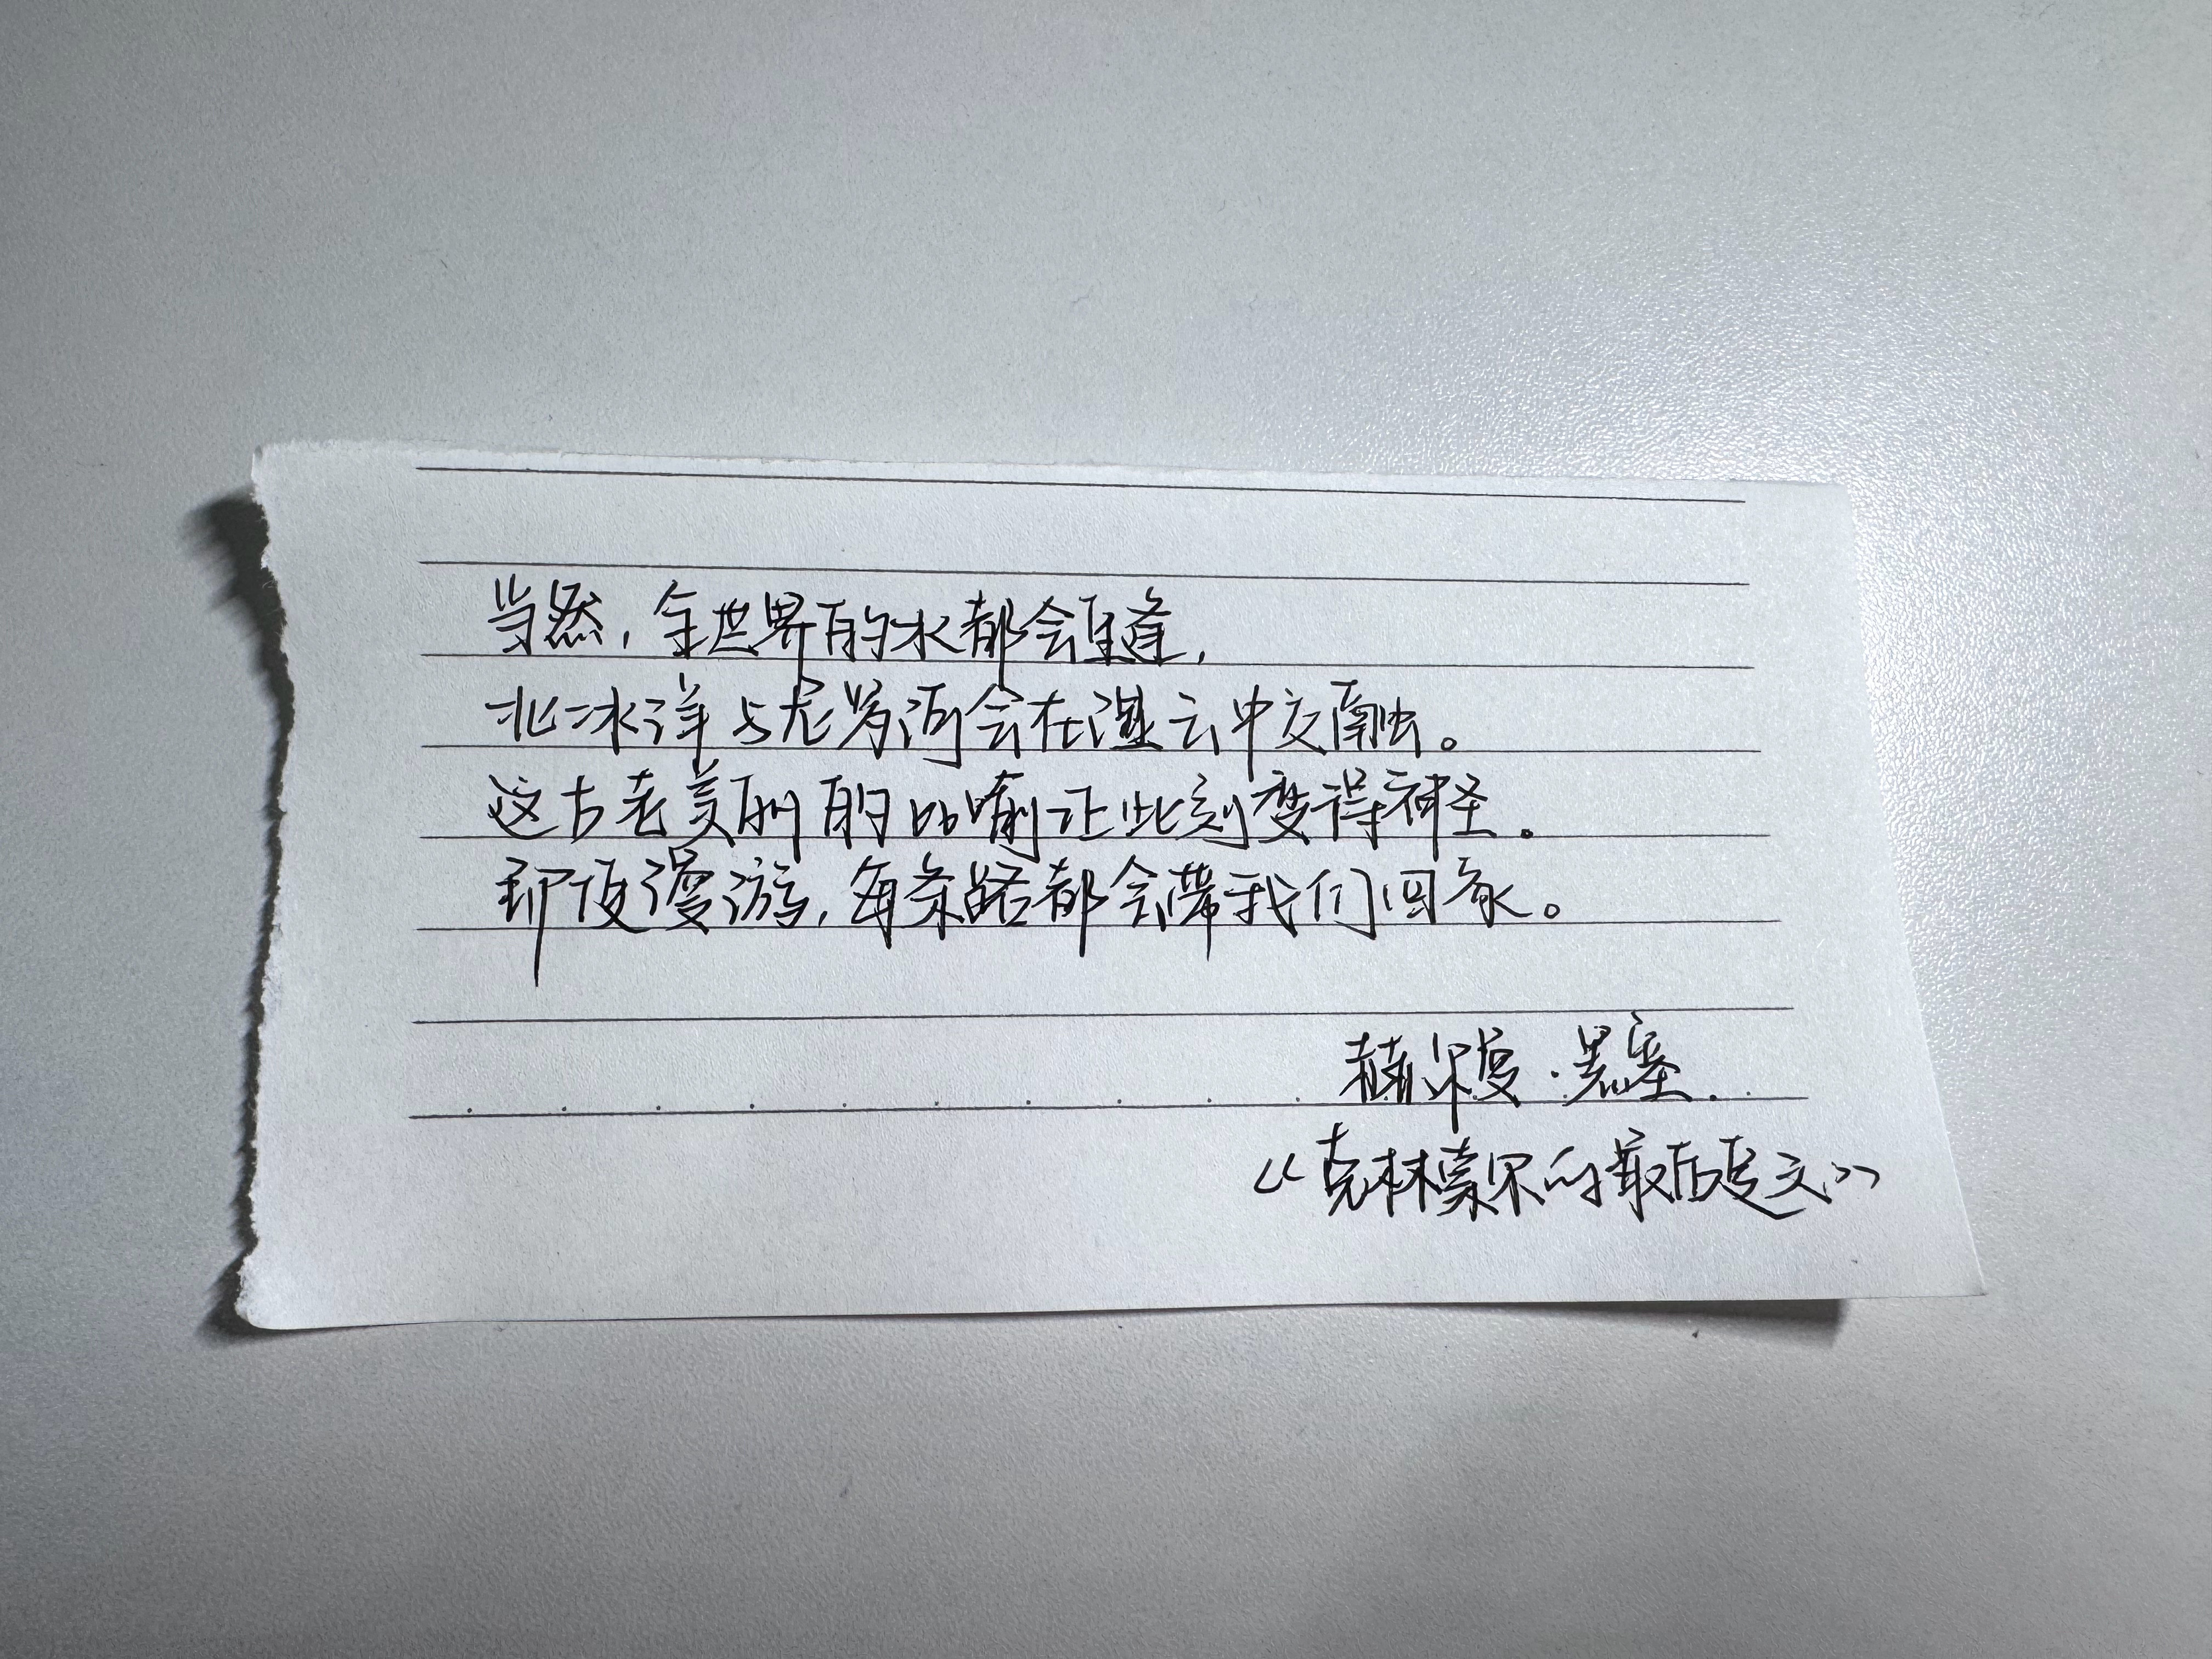 当然，全世界的水都会重逢，
北冰洋与尼罗河会在湿云中交融。
这古老美丽的比喻让此刻变得神圣。
即使漫游，每条路都会带我们回家。
赫尔曼·黑塞.
《克林索尔的最后夏天》